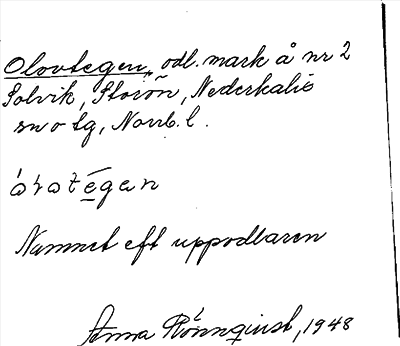 Olovtegen, odl. mark å nr 2
Solvik, Storön, Nederkalix
sn o tg, Norrb. l.
Namnet eft uppodlaren
Anna Rönnqvist, 1948